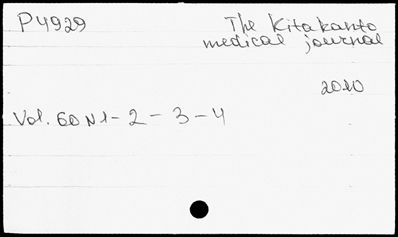 P4929
The Kitakanto
medical journal
2010
Vol. 60 N 1 - 2 - 3 - 4